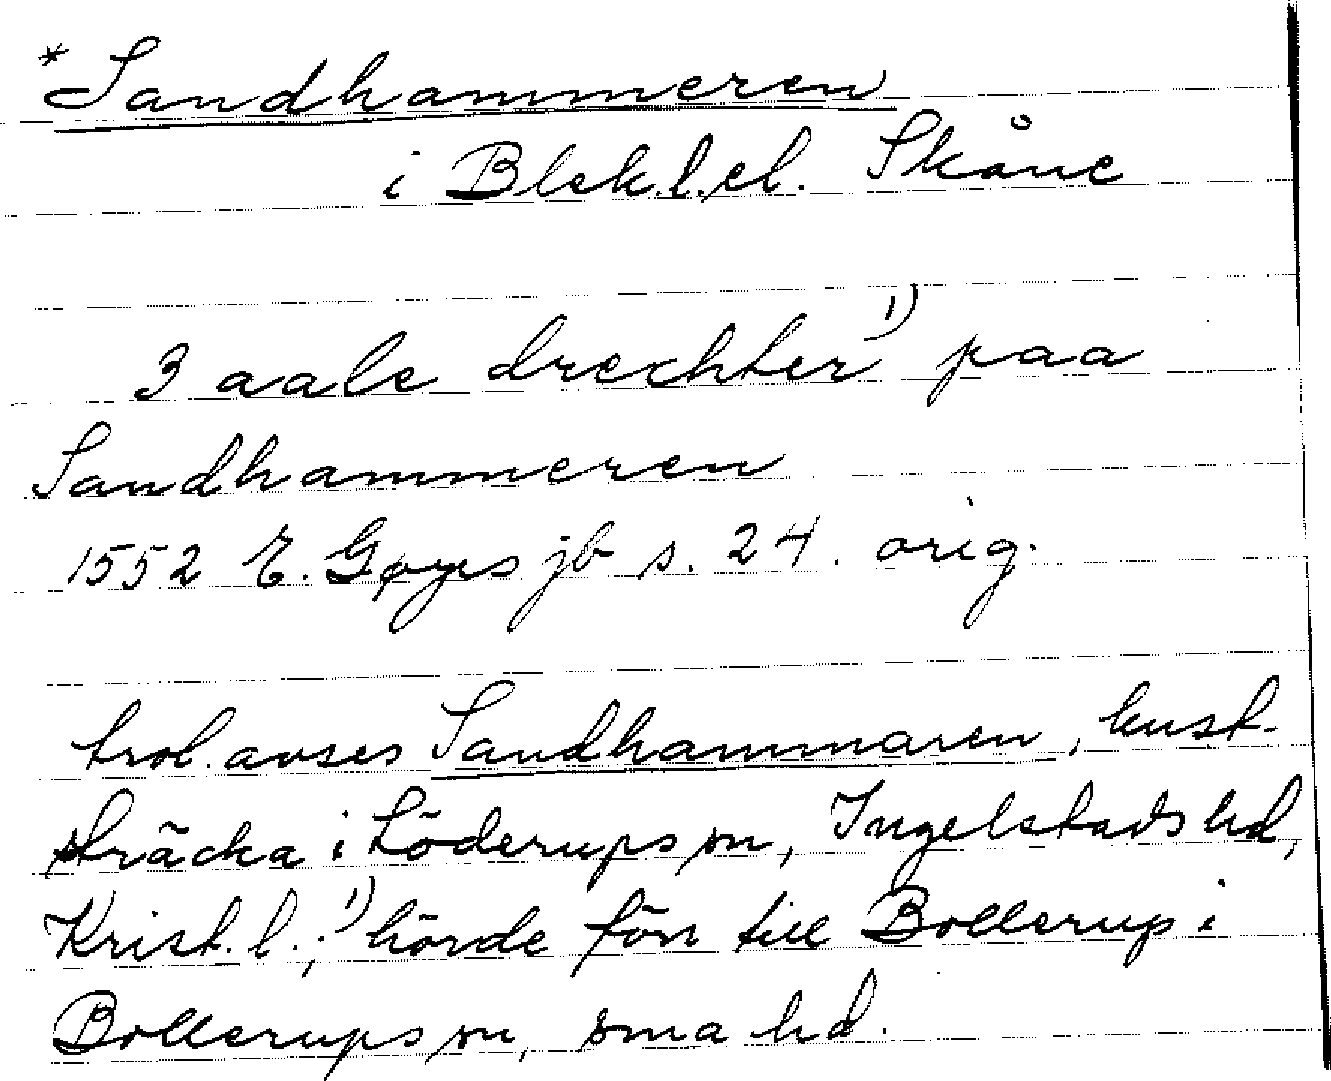 *Sandhammeren
i Blek.l. el. Skåne
3 aale drechter 1) paa
Sandhammeren
1552 E. Gøyes jb s. 24. orig.
trol. avses Sandhammaren, kust-
sträcka i Löderups sn, Ingelstads hd,
Krist. l.; 1) hörde förr till Bollerup i
Bollerups sn, sma hd.